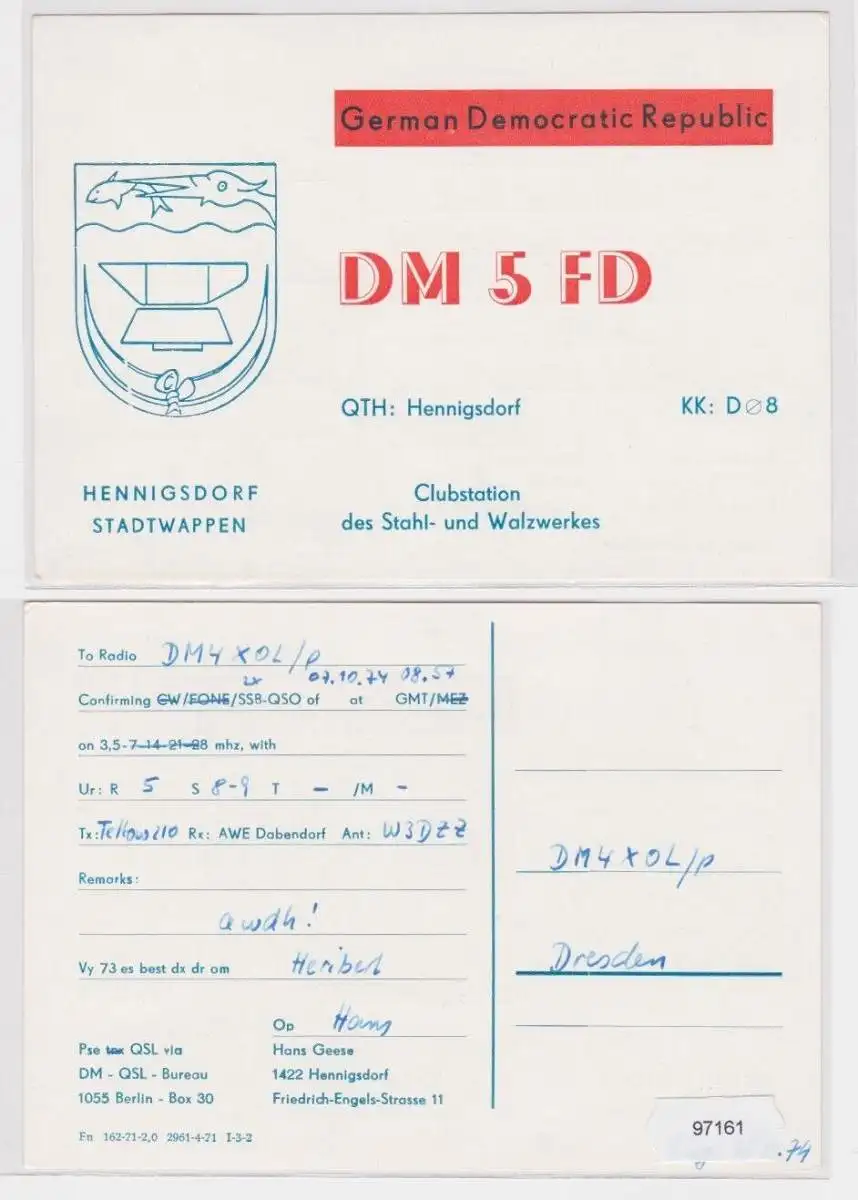 German Democratic Republic
DM 5 FD
QTH: Hennigsdorf KK: DØ8
HENNIGSDORF
STADTWAPPEN
Clubstation
des Stahl- und Walzwerkes
To Radio DM4XOL/p
2x 07.10.74 08.57
Confirming CW/FONE/SSB-QSO of at GMT/MEZ
on 3,5-7-14-21-28 mhz, with
Ur: R 5 S 8-9 T – /M -
Tx: Rx: AWE Dabendorf Ant: W3DZZ
Remarks:
awdh!
Vy 73 es best dx dr om Heribert
Op Hans
Pse tnx QSL via
DM - QSL - Bureau
1055 Berlin - Box 30
Hans Geese
1422 Hennigsdorf
Friedrich-Engels-Strasse 11
Fn 162-71-2,0 2961-4-71 I-3-2
DM4XOL/p
Dresden
97161
.74